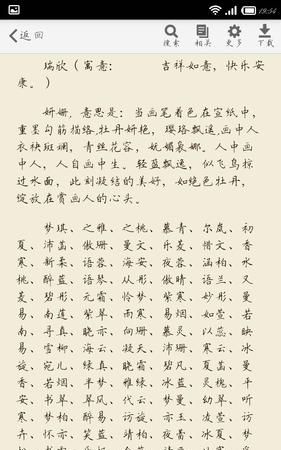 19:54
返回
搜索 相关 更多 下载
瑞欣（寓意： 吉祥如意，快乐安
康。）
妍姗，意思是：当画笔着色在宣纸中，
重墨勾筋描络，牡丹娇艳，璎珞飘逸，画中人
衣袂斑斓，青丝花容，妩媚袅娜。人中画
中人，人自画中生。轻蓝飘逸，似飞鸟掠
过水面，此刻凝结的美好，如绝色牡丹，
绽放在赏画人的心头。
梦琪、之雅、之桃、慕青、尔岚、初
夏、沛菡、傲珊、曼文、乐菱、惜文、香
寒、新柔、语蓉、海安、夜蓉、涵柏、水
桃、醉蓝、语琴、从彤、傲晴、语兰、又
菱、碧彤、元霜、怜梦、紫寒、妙彤、曼
易、南莲、紫翠、雨寒、易烟、如萱、若
南、寻真、晓亦、向珊、慕灵、以蕊、映
易、雪柳、海云、凝天、沛珊、寒云、冰
旋、宛儿、绿真、晓霜、碧凡、夏菡、曼
香、若烟、半梦、雅绿、冰蓝、灵槐、平
安、书翠、翠风、代云、梦曼、幼翠、听
寒、梦柏、醉易、访旋、亦玉、凌萱、访
卉、怀亦、笑蓝、靖柏、夜蕾、冰夏、梦